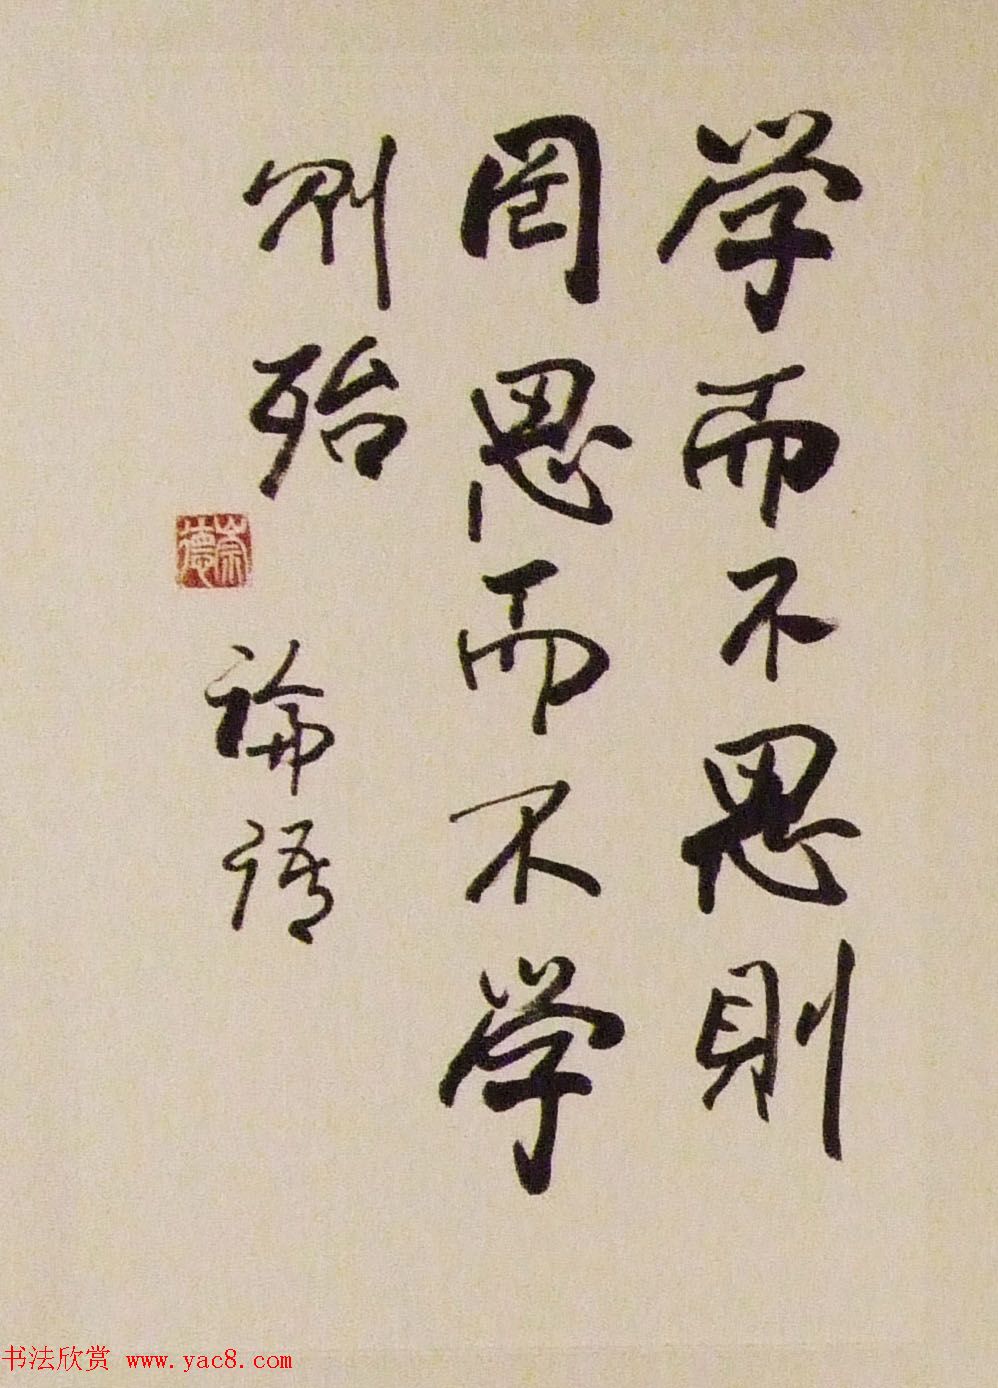 学而不思則
罔思而不学
則殆
論語
崇德
书法欣赏 www.yac8.com